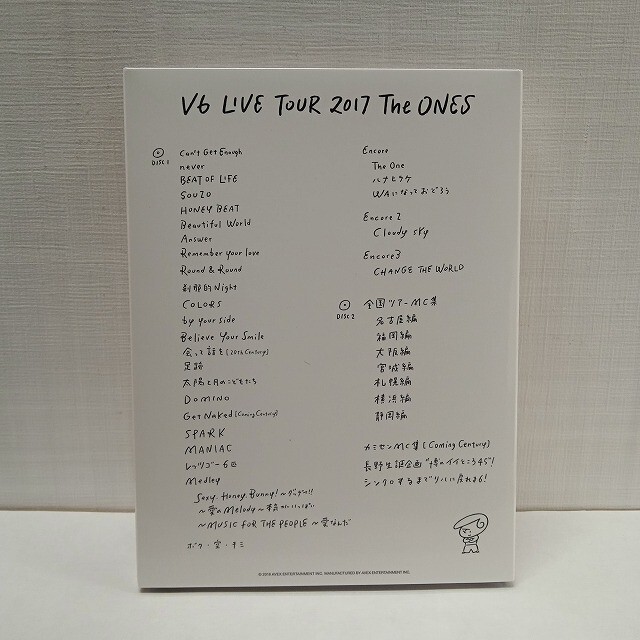 V6 LIVE TOUR 2017 The ONES
DISC 1
Can't Get Enough
never
BEAT OF LIFE
SOUZO
HONEY BEAT
Beautiful World
Answer
Remember your love
Round & Round
刹那的Night
COLORS
by your side
Believe Your Smile
会って話を [20th Century]
足跡
太陽と月のこどもたち
DOMINO
Get Naked [Coming Century]
SPARK
MANIAC
レッツゴー6匹
Medley
Sexy.Honey.Bunny!~グッデイ!!
~愛のMelody~本気がいっぱい
~MUSIC FOR THE PEOPLE~愛なんだ
ボク・空・キミ
Encore
The One
ハナヒラケ
WAになっておどろう
Encore 2
Cloudy sky
Encore3
CHANGE THE WORLD
DISC 2
全国ツアーMC集
名古屋編
福岡編
大阪編
宮城編
札幌編
横浜編
静岡編
カミセンMC集 [Coming Century]
長野生誕企画 "博のイイところ45"!
シンクロするまでリハに戻れま6!
© 2018 AVEX ENTERTAINMENT INC. MANUFACTURED BY AVEX ENTERTAINMENT INC.